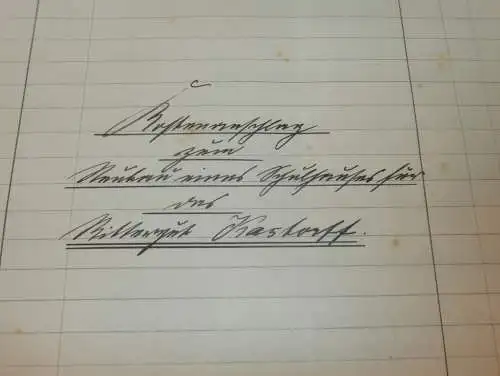 Kostenanschlag
zum
Neubau eines Schulhauses für
das
Rittergut Kastorff.